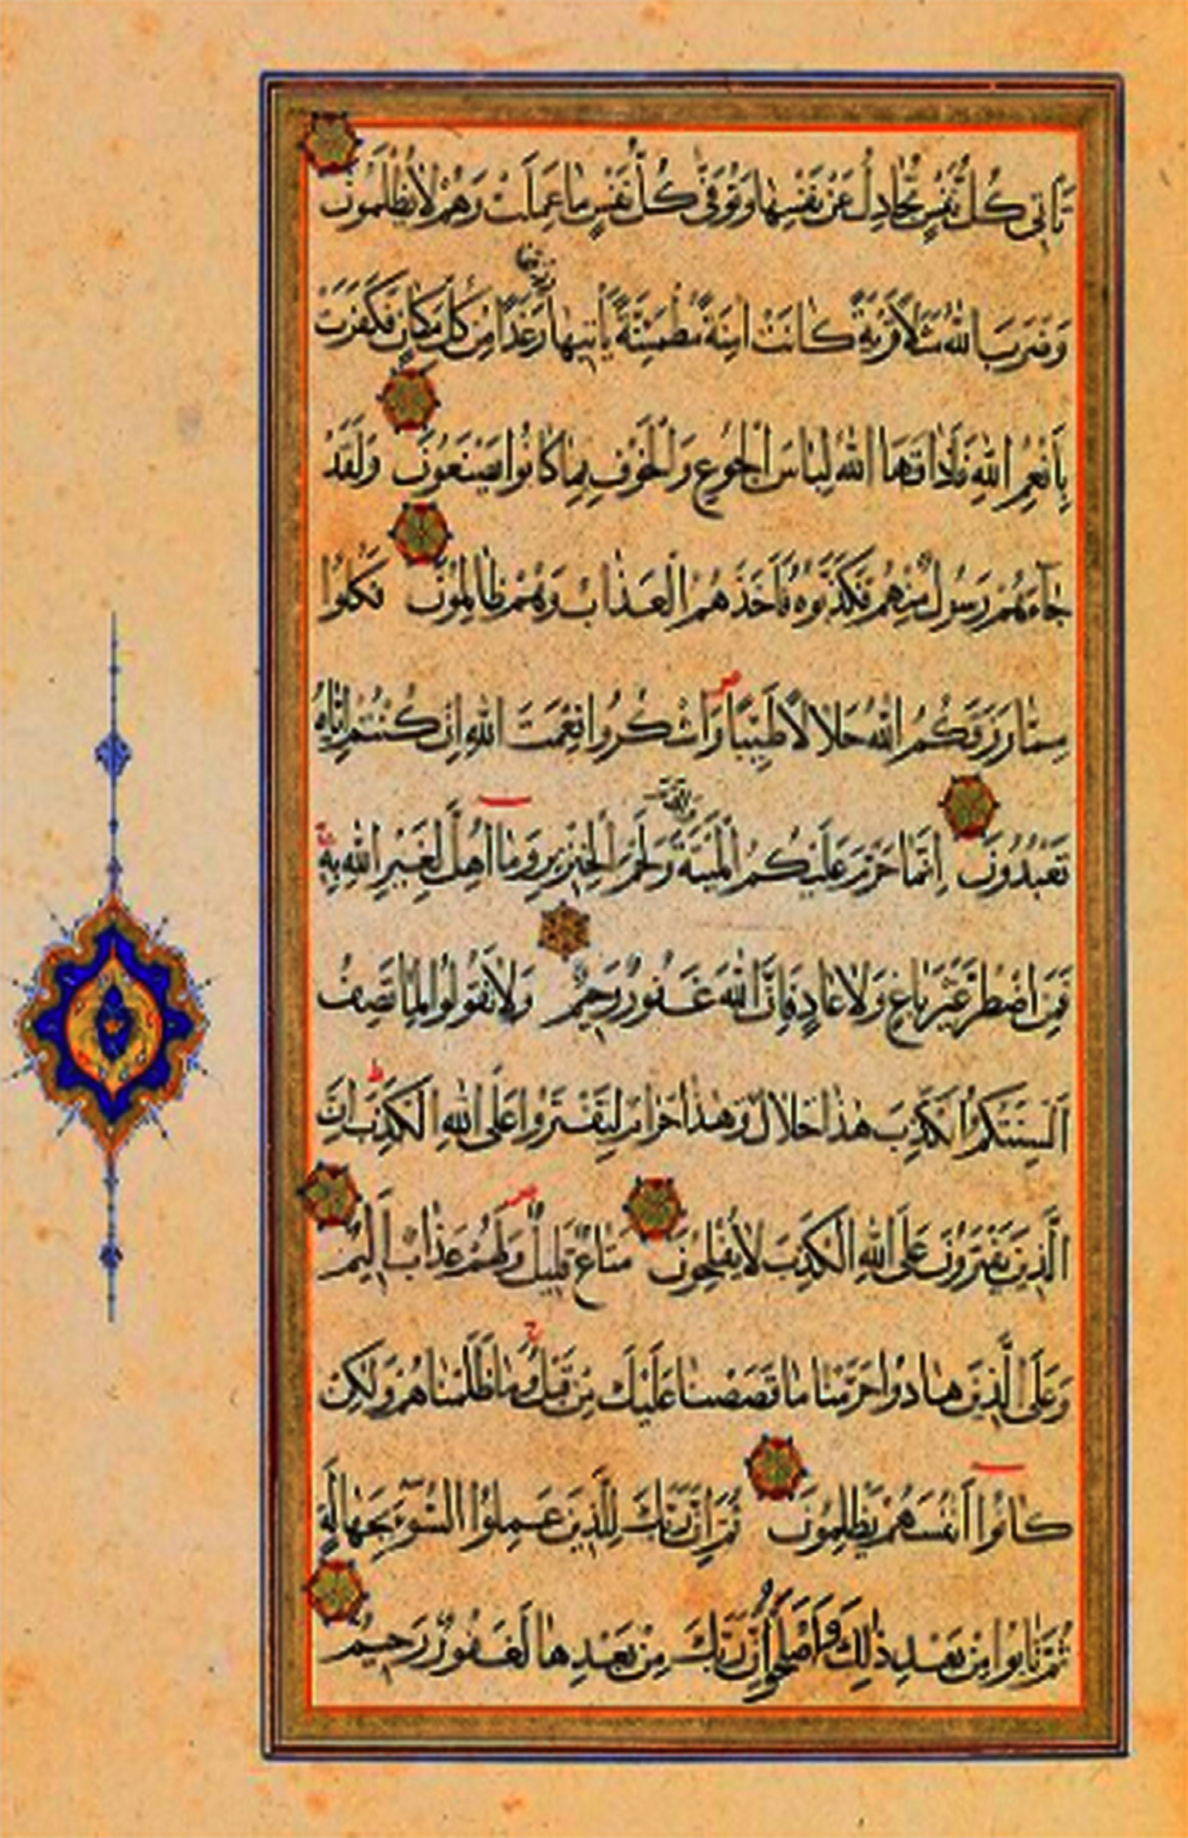 تَأْتِي كُلُّ نَفْسٍ تُجَادِلُ عَنْ نَفْسِهَا وَتُوَفَّى كُلُّ نَفْسٍ مَا عَمِلَتْ وَهُمْ لَا يُظْلَمُونَ
وَضَرَبَ اللهُ مَثَلًا قَرْيَةً كَانَتْ اٰمِنَةً مُطْمَئِنَّةً يَأْتِيهَا رِزْقُهَا رَغَدًا مِنْ كُلِّ مَكَانٍ فَكَفَرَتْ
بِأَنْعُمِ اللهِ فَأَذَاقَهَا اللهُ لِبَاسَ الْجُوعِ وَالْخَوْفِ بِمَا كَانُوا يَصْنَعُونَ وَلَقَدْ
جَاءَهُمْ رَسُولٌ مِنْهُمْ فَكَذَّبُوهُ فَأَخَذَهُمُ الْعَذَابُ وَهُمْ ظَالِمُونَ فَكُلُوا
مِمَّا رَزَقَكُمُ اللهُ حَلَالًا طَيِّبًا وَاشْكُرُوا نِعْمَتَ اللهِ اِنْ كُنْتُمْ اِيَّاهُ
تَعْبُدُونَ اِنَّمَا حَرَّمَ عَلَيْكُمُ الْمَيْتَةَ وَالدَّمَ وَلَحْمَ الْخِنْزِيرِ وَمَا اُهِلَّ لِغَيْرِ اللهِ بِهِ
فَمَنِ اضْطُرَّ غَيْرَ بَاغٍ وَلَا عَادٍ فَاِنَّ اللهَ غَفُورٌ رَحِيمٌ وَلَا تَقُولُوا لِمَا تَصِفُ
اَلْسِنَتُكُمُ الْكَذِبَ هٰذَا حَلَالٌ وَهٰذَا حَرَامٌ لِتَفْتَرُوا عَلَى اللهِ الْكَذِبَ اِنَّ
الَّذِينَ يَفْتَرُونَ عَلَى اللهِ الْكَذِبَ لَا يُفْلِحُونَ مَتَاعٌ قَلِيلٌ وَلَهُمْ عَذَابٌ اَلِيمٌ
وَعَلَى الَّذِينَ هَادُوا حَرَّمْنَا مَا قَصَصْنَا عَلَيْكَ مِنْ قَبْلُ وَمَا ظَلَمْنَاهُمْ وَلٰكِنْ
كَانُوا اَنْفُسَهُمْ يَظْلِمُونَ ثُمَّ اِنَّ رَبَّكَ لِلَّذِينَ عَمِلُوا السُّوءَ بِجَهَالَةٍ
ثُمَّ تَابُوا مِنْ بَعْدِ ذٰلِكَ وَاَصْلَحُوا اِنَّ رَبَّكَ مِنْ بَعْدِهَا لَغَفُورٌ رَحِيمٌ